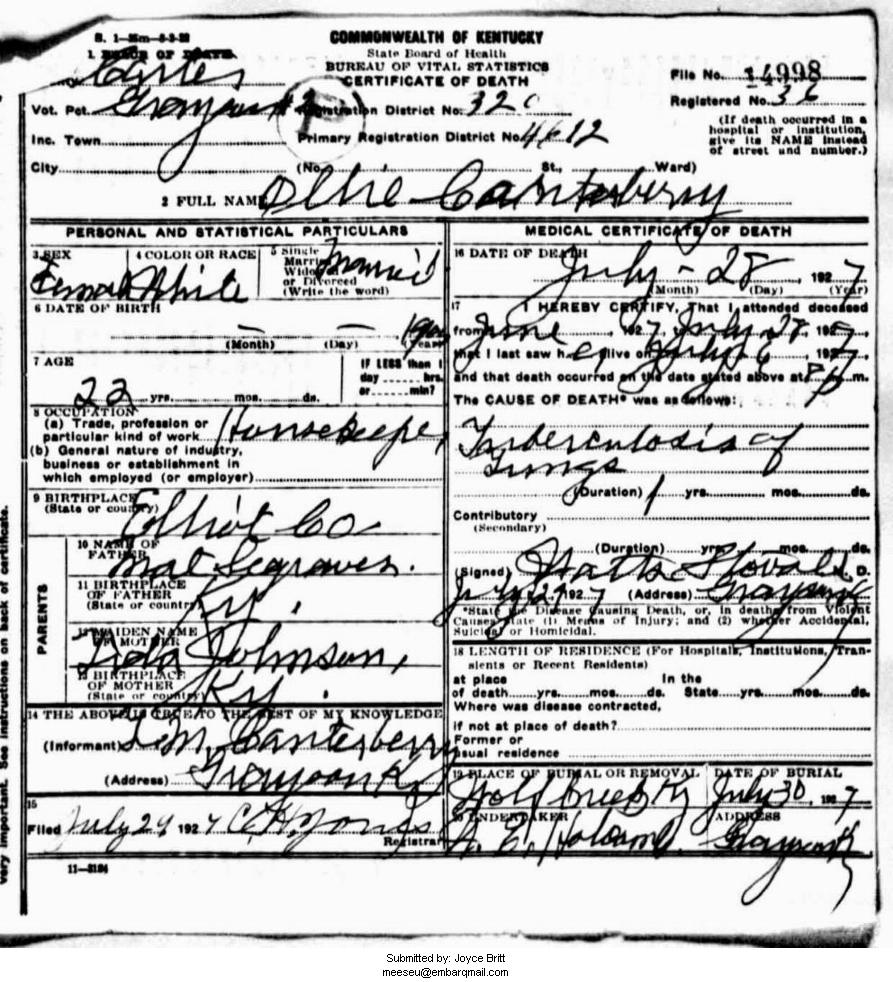 S. 1-25m-8-2-20
COMMONWEALTH OF KENTUCKY
State Board of Health
BUREAU OF VITAL STATISTICS
CERTIFICATE OF DEATH
1. PLACE OF DEATH
Carter
File No. 14998
Vot. Pct. Grayson #2 Registration District No. 320
Registered No. 36
Inc. Town Primary Registration District No. 4612
(If death occurred in a hospital or institution, give its NAME instead of street and number.)
City (No. St., Ward)
2 FULL NAME Ollie Canterberry
PERSONAL AND STATISTICAL PARTICULARS
3 SEX Female
4 COLOR OR RACE White
5 Single Married Widowed or Divorced (Write the word) Married
6 DATE OF BIRTH
(Month) (Day)
7 AGE
22 yrs. mos. ds.
IF LESS than 1 day hrs. or min?
8 OCCUPATION
(a) Trade, profession or particular kind of work Housekeeper
(b) General nature of industry, business or establishment in which employed (or employer)
9 BIRTHPLACE (State or country) Elliot Co
PARENTS
10 NAME OF FATHER Mat Segraves
11 BIRTHPLACE OF FATHER (State or country) Ky.
12 MAIDEN NAME OF MOTHER Johnson,
13 BIRTHPLACE OF MOTHER (State or country) Ky.
14 THE ABOVE IS TRUE TO THE BEST OF MY KNOWLEDGE
(Informant) Canterberry
(Address) Grayson Ky
15
Filed July 29 1927 C. H. Jones
Registrar
11-3184
MEDICAL CERTIFICATE OF DEATH
16 DATE OF DEATH July - 28, 1927
(Month) (Day) (Year)
17 I HEREBY CERTIFY, That I attended deceased
from June 1927, to July 28 1927
that I last saw her alive on July 6, 1927
and that death occurred on the date stated above at 8 p m.
The CAUSE OF DEATH* was as follows:
Tuberculosis of
Lungs
(Duration) 1 yrs. mos. ds.
Contributory
(Secondary)
(Duration) yrs. mos. ds.
(Signed) Watts Stovall M. D.
July 29 1927 (Address) Grayson Ky
*State the Disease Causing Death, or, in deaths from Violent
Causes state (1) Means of Injury; and (2) whether Accidental,
Suicidal or Homicidal.
18 LENGTH OF RESIDENCE (For Hospitals, Institutions, Transients or Recent Residents)
at place In the
of death yrs. mos. ds. State yrs. mos. ds.
Where was disease contracted,
if not at place of death?
Former or
usual residence
19 PLACE OF BURIAL OR REMOVAL Wolf Creek Ky
DATE OF BURIAL July 30 1927
20 UNDERTAKER
ADDRESS Grayson Ky
very important. See instructions on back of certificate.
Submitted by: Joyce Britt
meeseu@embarqmail.com